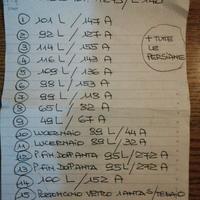 ① 101 L / 147 A
② 92 L / 127 A
③ 114 L / 155 A
④ 116 L / 143 A
⑤ 109 L / 136 A
⑥ 98 L / 153 A
⑦ 99 L / 113 A
⑧ 65 L / 32 A
⑨ 49 L / 67 A
⑩ LUCERNAIO 89 L / 44 A
⑪ LUCERNAIO 89 L / 32 A
⑫ P. FIN. DOP. ANTA 95 L / 272 A
⑬ P. FIN DOP. ANTA 95 L / 272 A
⑭ 100 L / 152 A
⑮ PORTONCINO VETRO 1 ANTA S/TELAIO
+ TUTTE
LE
PERSIANE